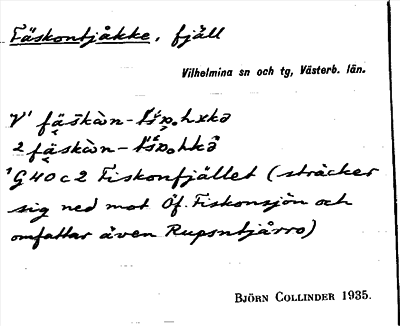 Fäskontjåkke, fjäll
Vilhelmina sn och tg, Västerb. län.
G 40 c 2 Fiskonfjället (sträcker
sig ned mot Öf. Fiskonsjön och
omfattar även Rupsntjårro)
BJÖRN COLLINDER 1935.